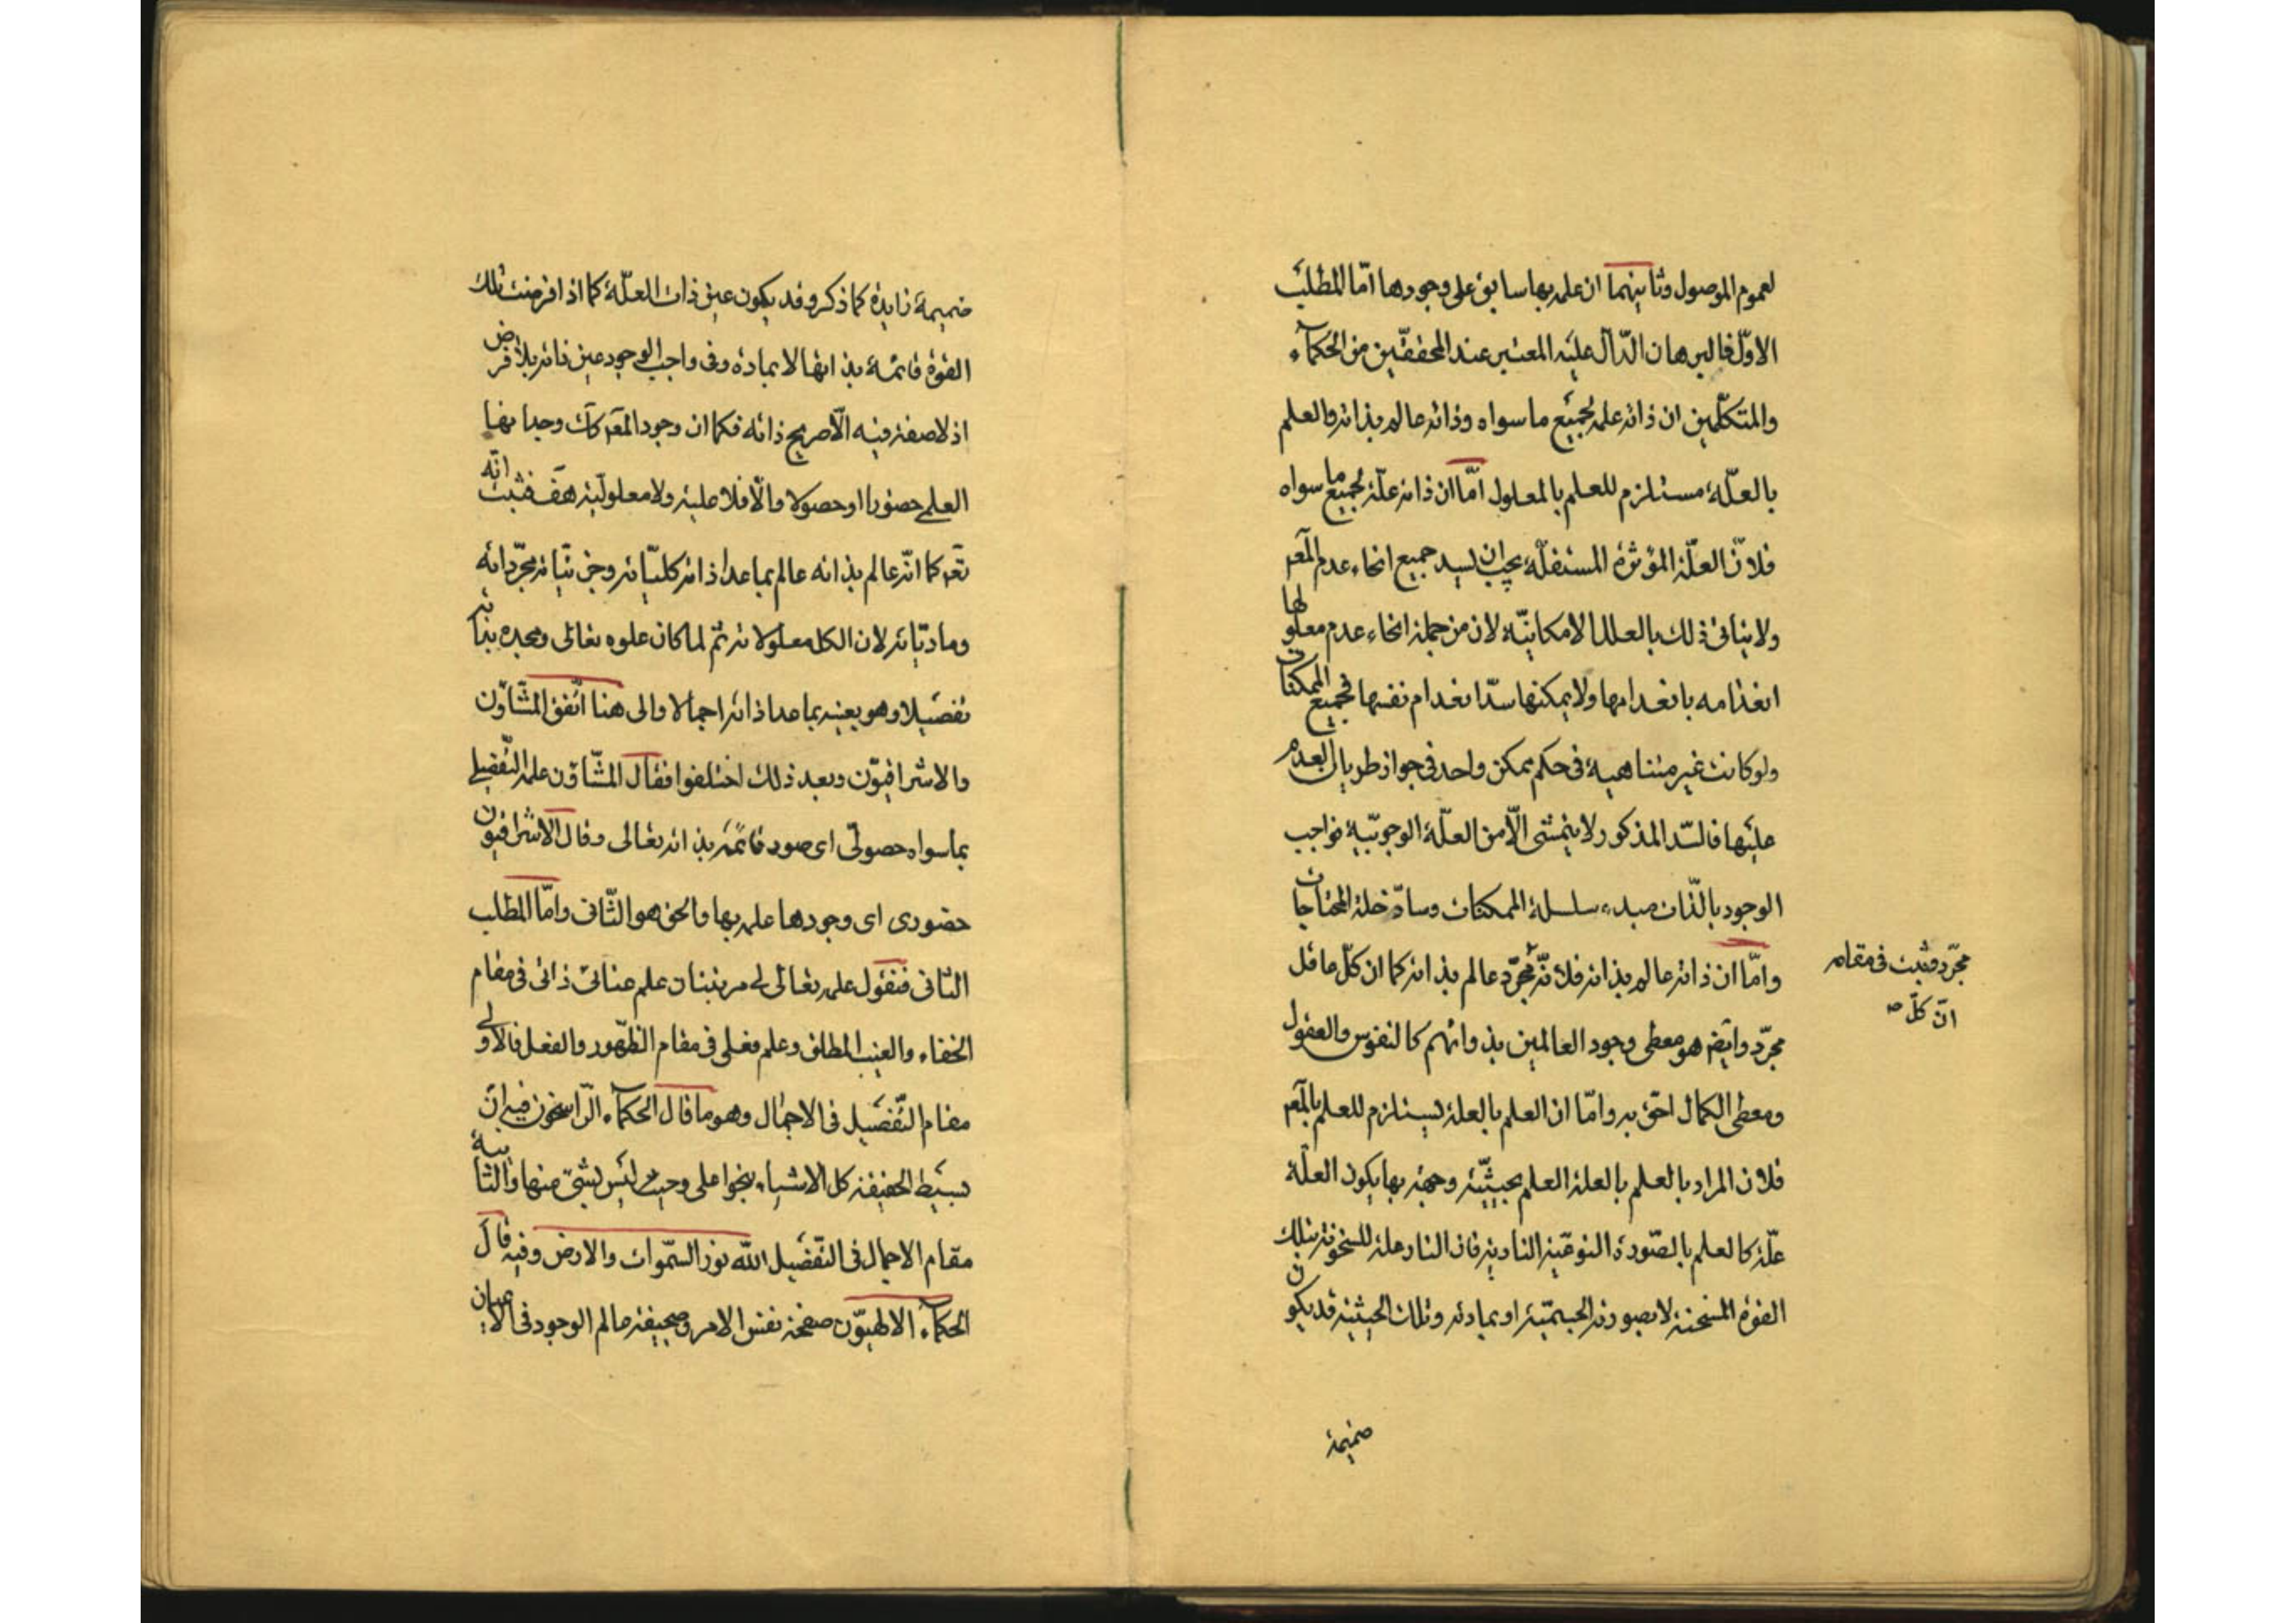 لعموم الموصول وثانيهما ان علمه بها سابق على وجودها امّا المطلب
الاوّل فالبرهان الدّالّ عليه المعتبر عند المحققّين من الحكمآء
والمتكلّمين ان ذاته علّه لجميع ما سواه وذاته عالمه بذاته والعلم
بالعلّة مستلزم للعلم بالمعلول امّا ان ذاته علّة لجميع ما سواه
فلانّ العلّة المؤثرة المستقلّة يجب ان يسد جميع انحاء عدم المعـ
ولا ينافى ذلك بالعلل الامكانيّة لان من جملة انحاء عدم معلولها
انعدامه بانعدامها ولا يمكنها سدّ انعدام نفسها فجميع الممكنات
ولو كانت غير متناهية فى حكم ممكن واحد فى جواز طريان العدم
عليها فالسّد المذكور لا يتمشى الّا من العلّة الوجوبيّة فواجب
الوجود بالذّات مبدء سلسلة الممكنات وسادّ خلة المحتاجات
وامّا ان ذاته عالمه بذاته فلانّه مجرّد عالم بذاته كما ان كلّ عاقل
مجرّد وايضـ هو معطى وجود العالمين بذواتهم كالنفوس والعقول
ومعطى الكمال احقّ به وامّا ان العلم بالعلة يستلزم للعلم بالمعـ
فلان المراد بالعلم بالعلة العلم بحيثيّة وجهة بها يكون العلّة
علّة كالعلم بالصّورة النوعيّة النارية فان النار علة للسخونة بتلك
القوة المسخنة لا بصورته الجسميّة او بمادته وتلك الحيثية قد يكون
ضميمة
مجرّد فثبت فى مقامه
انّ كلّ صـ
ضميمة زايدة كما ذكر وقد يكون عين ذات العلّة كما اذا فرضت تلك
القوة قائمة بذاتها لا بمادة وفى واجب الوجود عين ذاته بلا فرض
اذ لا صفة فيه الّا صريح ذاته فكما ان وجود المعـ كك وجدانها
العلمى حضوريا او حصولا والّا فلا علية ولا معلوليّة هف فثبت انّه
تعـ كما انّه عالم بذاته عالم بما عدا ذاته كليّاته وجزئيّاته مجرّداته
وماديّاته لان الكل معلولاته ثم لما كان علوه تعالى ومجده بذاته
تفصيلا وهو بعينه بما عدا ذاته اجمالا والى هنا اتّفق المشّاؤن
والاشراقيّون وبعد ذلك اختلفوا فقال المشّاؤن علمه التّفصيلى
بما سواه حصولّى اى صور قائمة بذاته تعالى وقال الاشراقيون
حضورى اى وجودها علمه بها والحق هو الثّانى وامّا المطلب
الثانى فنقول علمه تعالى له مرتبتان علم عنائىّ ذاتى فى مقام
الخفاء والغيب المطلق وعلم فعلى فى مقام الظّهور والفعل فالاولى
مقام التّفصيل فى الاجمال وهو ما قال الحكمآء الرّاسخون فيه انّ
بسيط الحقيقة كل الاشياء بنحو اعلى وحيث ليس بشىّ منها والثانية
مقام الاجمال فى التّفصيل الله نور السّموات والارض وفيه قال
الحكمآء الالهيّون صفحة نفس الامر وصحيفة عالم الوجود فى الاعيان